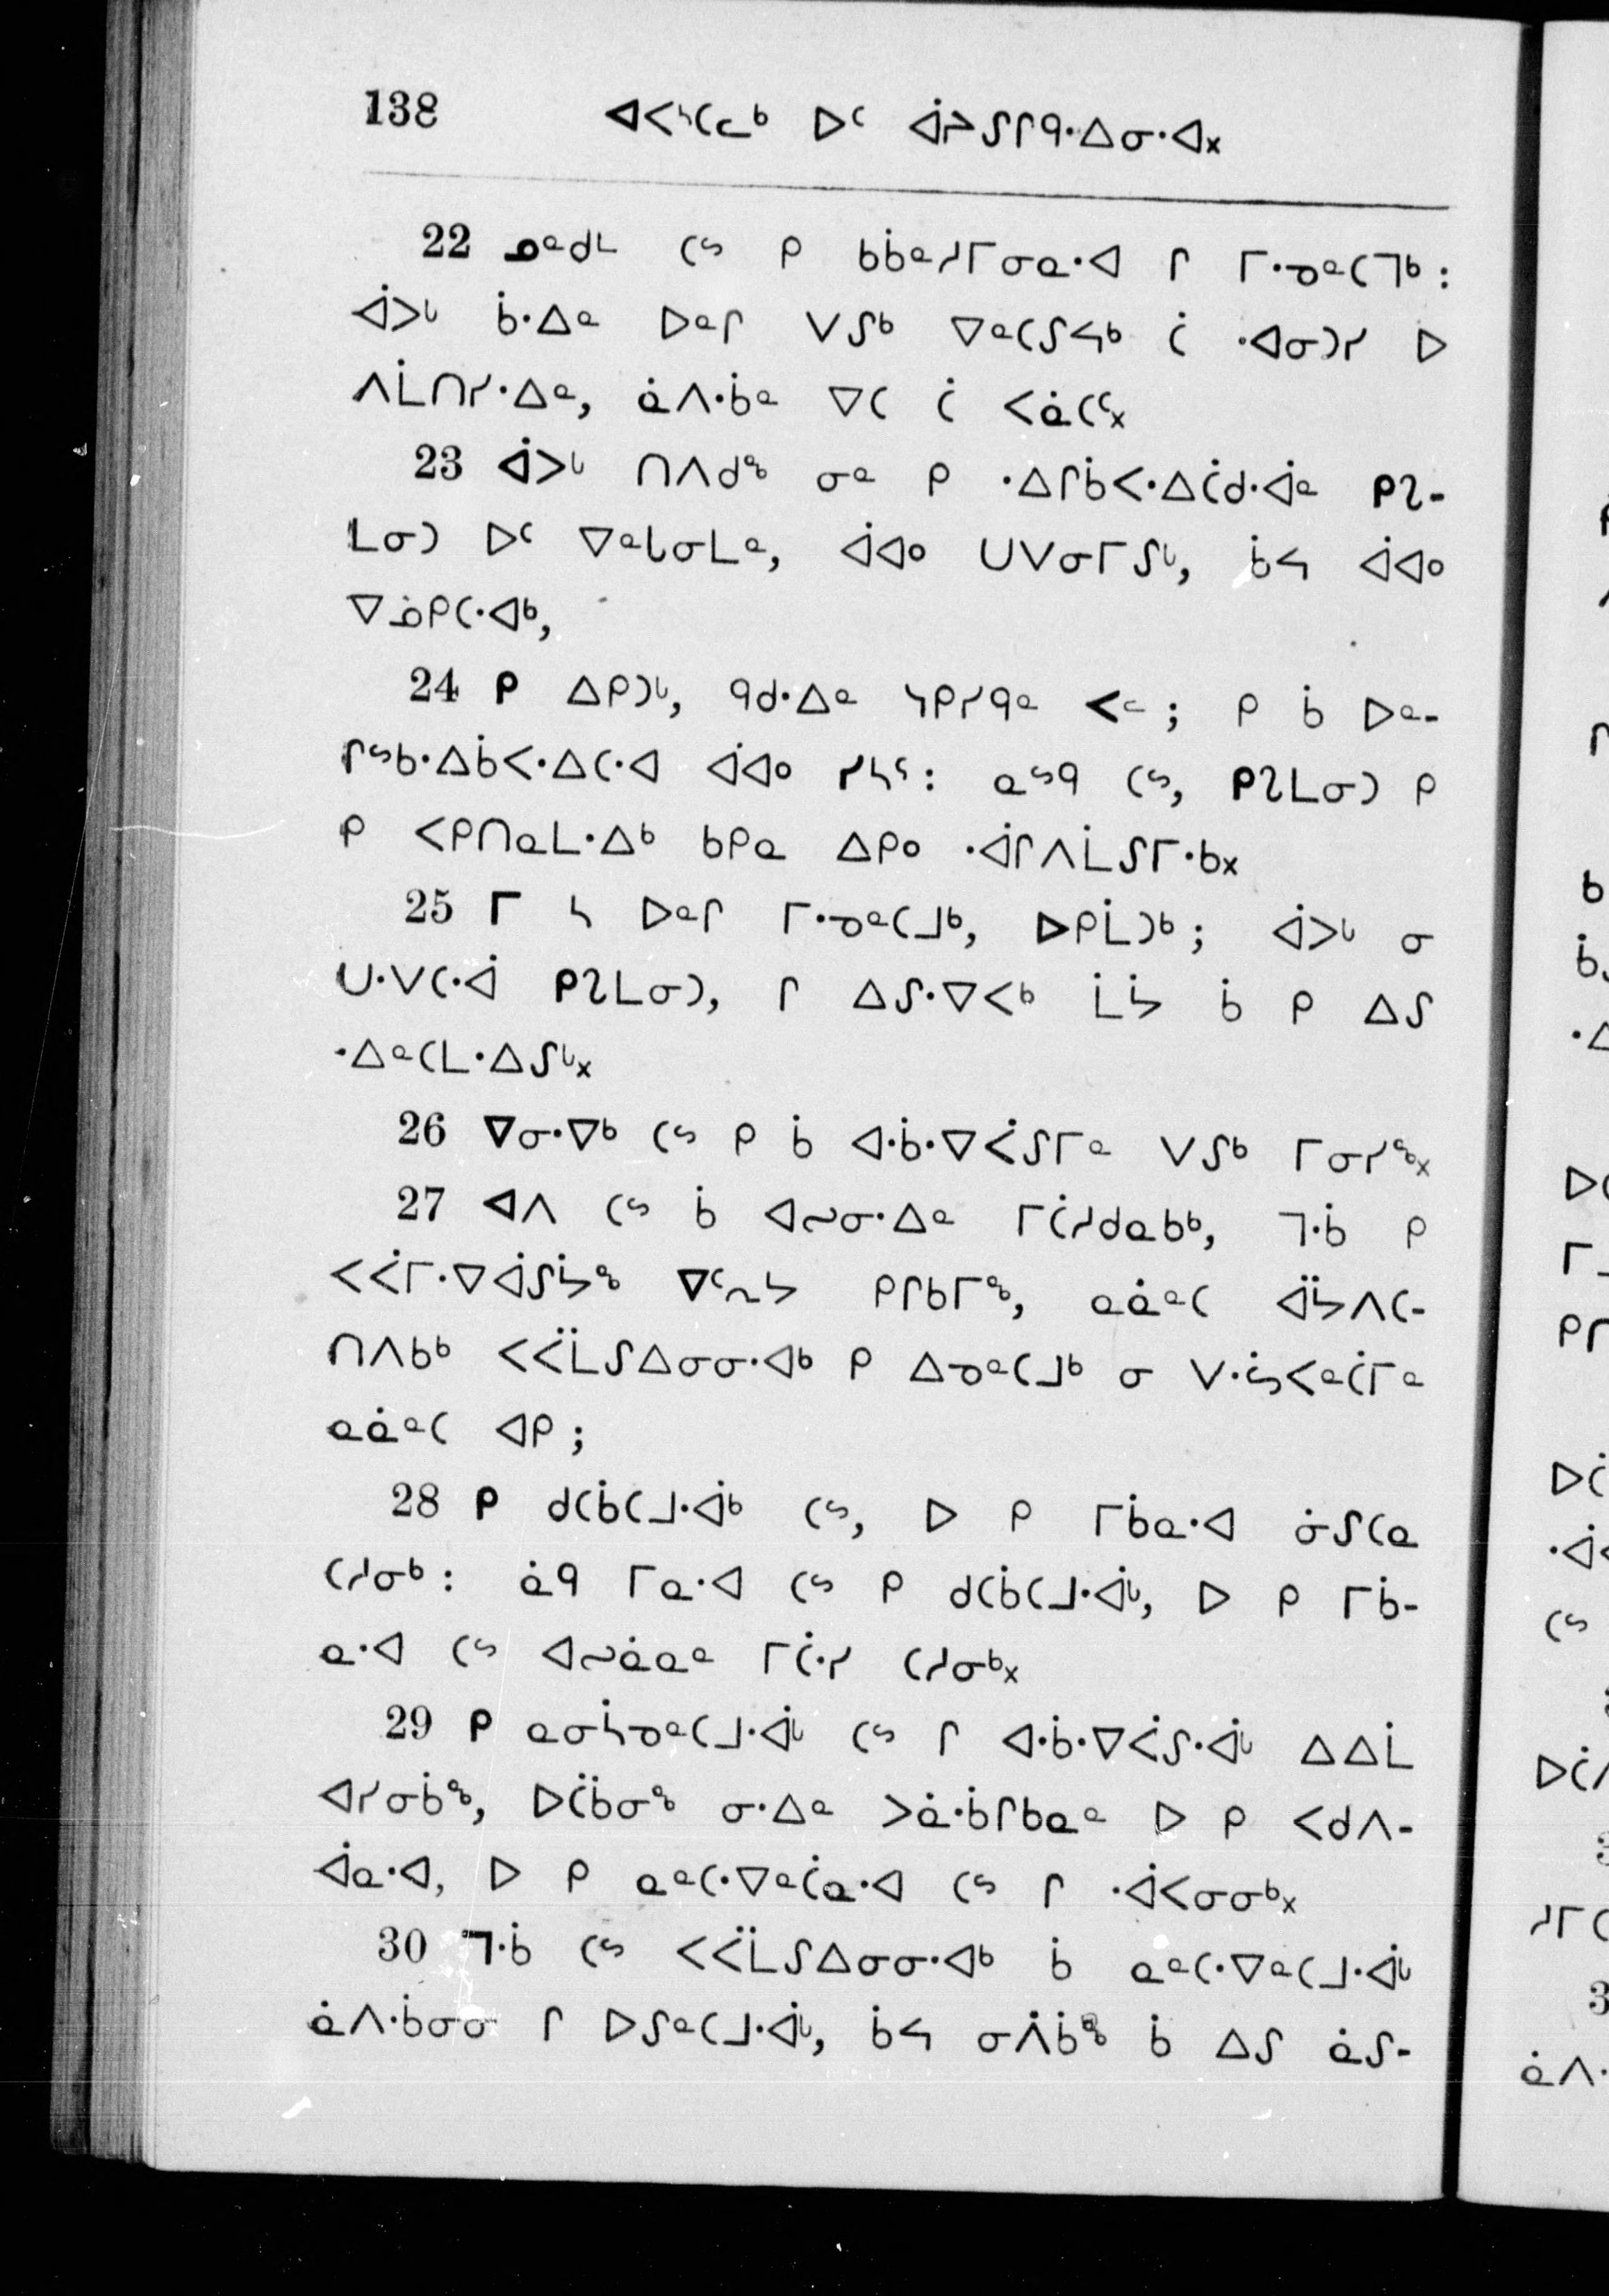 138 ᐊᐸᔅᑕᓚᒃ ᐅᑦ ᐋᔨᒋᑫᐧᐃᓂᐧᐊ᙮
22 ᓄᓐᑯᒪ ᑕᔥ ᑭ ᑲᑳᓐᓱᒥᓂᓇᐧᐊ ᒋ ᒥᐧᓄᓐᑕᒣᒃ :
ᐋᐳᒡ ᑳᐧᐃᓐ ᐅᓐᒋ ᐯᔑᒃ ᐁᓐᑕᔑᔦᒃ ᑖ ᐧᐊᓂᑐᓯ ᐅ
ᐱᒫᑎᓯᐧᐃᓐ, ᓈᐱᐧᑳᓐ ᐁᑕ ᑖ ᐸᓈᑕᑦ᙮
23 ᐋᐳᒡ ᑎᐱᑯᒃ ᓂᓐ ᑭ ᐧᐃᒋᑳᐸᐧᐃᑖᑯᐧᐋᓐ ᑭᒋ-
ᒪᓂᑐ ᐅᑦ ᐁᓐᒐᓂᒪᓐ, ᐋᐊᐤ ᑌᐯᓂᒥᔑᒡ, ᑳᔦ ᐋᐊᐤ
ᐁᓅᑭᑕᐧᐊᒃ,
24 ᑭ ᐃᑭᑐᒡ, ᑫᑯᐧᐃᓐ ᓴᑭᓯᑫᓐ ᐸᓪ ; ᑭ ᑳ ᐅᓐ-
ᒋᔥᑲᐧᐃᑳᐸᐧᐃᑕᐧᐊ ᐋᐊᐤ ᓯᓴᕐ : ᓇᔥᑫ ᑕᔥ, ᑭᒋᒪᓂᑐ ᑭ
ᑭ ᐸᑭᑎᓇᒪᐧᐃᒃ ᑲᑭᓇ ᐃᑭᐤ ᐧᐋᒋᐱᒫᔑᒥᐧᑲ᙮
25 ᒥ ᓴ ᐅᓐᒋ ᒥᐧᓄᓐᑕᒧᒃ, ᐅᑭᒫᑐᒃ ; ᐋᐳᒡ ᓂ
ᑌᐧᐯᑕᐧᐋ ᑭᒋᒪᓂᑐ, ᒋ ᐃᔑᐧᐁᐸᒃ ᒫᔮ ᑳ ᑭ ᐃᔑ
ᐧᐃᓐᑕᒪᐧᐃᔑᒡ᙮
26 ᐁᓂᐧᐁᒃ ᑕᔥ ᑭ ᑳ ᐊᐧᑳᐧᐁᐹᔑᒥᓐ ᐯᔑᒃ ᒥᓂᓯᒃ᙮
27 ᐊᐱ ᑕᔥ ᑳ ᐊᔕᓂᐧᐃᓐ ᒥᑖᓱᑯᓇᑲᒃ, ᒣᐧᑳ ᑭ
ᐸᐹᒥᐧᐁᐋᔑᔮᒃ ᐁᑦᕆᔭ ᑭᒋᑲᒥᒃ, ᓇᓈᓐᑕ ᐋᔭᐱᑕ-
ᑎᐱᑲᒃ ᐸᐹᒫᔑᐃᓂᓂᐧᐊᒃ ᑭ ᐃᓄᓐᑕᒧᒃ ᓂ ᐯᐧᔓᐸᓐᑖᒥᓐ
ᓇᓈᓐᑕ ᐊᑭ ;
28 ᑭ ᑯᑕᑳᑕᒧᐧᐋᒃ ᑕᔥ, ᐅ ᑭ ᒥᑳᓇᐧᐊ ᓃᔑᑕᓇ
ᑕᓱᓂᒃ : ᓈᑫ ᒥᓇᐧᐊ ᑕᔥ ᑭ ᑯᑕᑳᑕᒧᐧᐋᒡ, ᐅ ᑭ ᒥᑳ-
ᓇᐧᐊ ᑕᔥ ᐊᔕᓈᓇᓐ ᒥᑖᐧᓯ ᑕᓱᓂᒃ᙮
29 ᑭ ᓇᓂᓵᓄᓐᑕᒧᐧᐋᒡ ᑕᔥ ᒋ ᐊᐧᑳᐧᐁᐹᔑᐧᐋᒡ ᐃᐃᒫ
ᐊᓯᓂᑳᒃ, ᐅᑖᑳᓂᒃ ᓂᐧᐃᓐ ᐳᓈᐧᑳᒋᑲᓇᓐ ᐅ ᑭ ᐸᑯᐱ-
ᐋᓇᐧᐊ, ᐅ ᑭ ᓇᓐᑕᐧᐁᓐᑖᓇᐧᐊ ᑕᔥ ᒋ ᐧᐋᐸᓂᓂᒃ᙮
30 ᒣᐧᑳ ᑕᔥ ᐸᐹᒫᔑᐃᓂᓂᐧᐊᒃ ᑳ ᓇᓐᑕᐧᐁᓐᑕᒧᐧᐋᒡ
ᓈᐱᐧᑳᓂᓂ ᒋ ᐅᔑᓐᑕᒧᐧᐋᒡ, ᑳᔦ ᓂᐲᑳᒃ ᑳ ᐃᔑ ᓈᔑ-